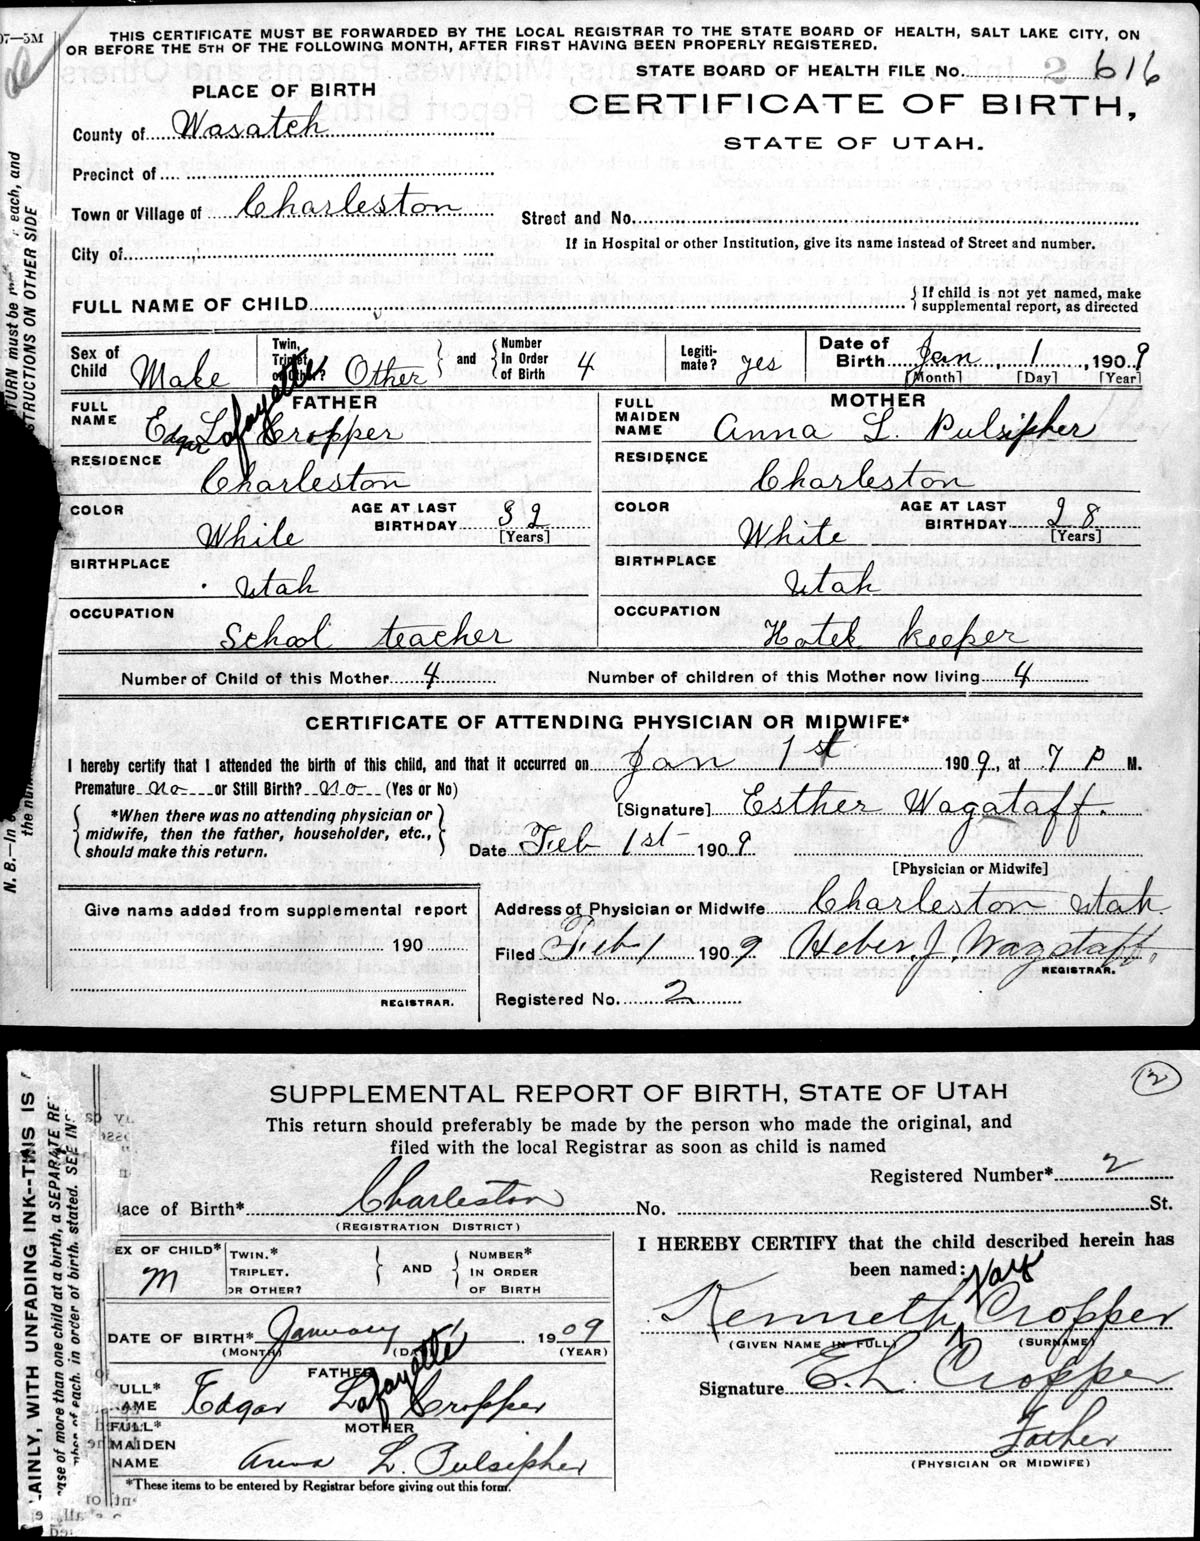 07—5M
THIS CERTIFICATE MUST BE FORWARDED BY THE LOCAL REGISTRAR TO THE STATE BOARD OF HEALTH, SALT LAKE CITY, ON
OR BEFORE THE 5TH OF THE FOLLOWING MONTH, AFTER FIRST HAVING BEEN PROPERLY REGISTERED.
STATE BOARD OF HEALTH FILE No. 616
PLACE OF BIRTH
CERTIFICATE OF BIRTH,
STATE OF UTAH.
County of Wasatch
Precinct of
Town or Village of Charleston
Street and No.
If in Hospital or other Institution, give its name instead of Street and number.
City of
FULL NAME OF CHILD
{ If child is not yet named, make supplemental report, as directed
Sex of Child Make Twin, Triplet or Other? Other } and { Number In Order of Birth 4 Legiti-mate? yes Date of Birth Jan 1, 1909
[Month] [Day] [Year]
FATHER MOTHER
FULL NAME Edgar Lafayette Cropper FULL MAIDEN NAME Anna L. Pulsipher
RESIDENCE Charleston RESIDENCE Charleston
COLOR White AGE AT LAST BIRTHDAY 32 [Years] COLOR White AGE AT LAST BIRTHDAY 28 [Years]
BIRTHPLACE Utah BIRTHPLACE Utah
OCCUPATION School teacher OCCUPATION Hotel keeper
Number of Child of this Mother 4 Number of children of this Mother now living 4
CERTIFICATE OF ATTENDING PHYSICIAN OR MIDWIFE*
I hereby certify that I attended the birth of this child, and that it occurred on Jan 1st 1909, at 7 P M.
Premature no or Still Birth? no (Yes or No)
[Signature] Esther Wagstaff.
{ *When there was no attending physician or
midwife, then the father, householder, etc.,
should make this return. }
Date Feb 1st 1909
[Physician or Midwife]
Give name added from supplemental report
Address of Physician or Midwife Charleston Utah
190
Filed Feb 1 1909 Heber J. Wagstaff.
REGISTRAR.
REGISTRAR.
Registered No. 2
TURN must be each, and
STRUCTIONS ON OTHER SIDE
N. B.—In
the num
2
SUPPLEMENTAL REPORT OF BIRTH, STATE OF UTAH
This return should preferably be made by the person who made the original, and
filed with the local Registrar as soon as child is named
Registered Number* 2
lace of Birth* Charleston No. St.
(REGISTRATION DISTRICT)
EX OF CHILD* M TWIN.* TRIPLET. OR OTHER? } AND { NUMBER* IN ORDER OF BIRTH
I HEREBY CERTIFY that the child described herein has
been named:
Kenneth Vay Cropper
(GIVEN NAME IN FULL) (SURNAME)
DATE OF BIRTH* January 1 1909
(MONTH) (DAY) (YEAR)
FATHER
FULL* NAME Edgar Lafayette Cropper
Signature E. L. Cropper
MOTHER
FULL* MAIDEN NAME Anna L. Pulsipher
Father
(PHYSICIAN OR MIDWIFE)
*These items to be entered by Registrar before giving out this form.
AINLY, WITH UNFADING INK--THIS IS
se of more than one child at a birth, a SEPARATE RE
of each, in order of birth, stated. SEE INS